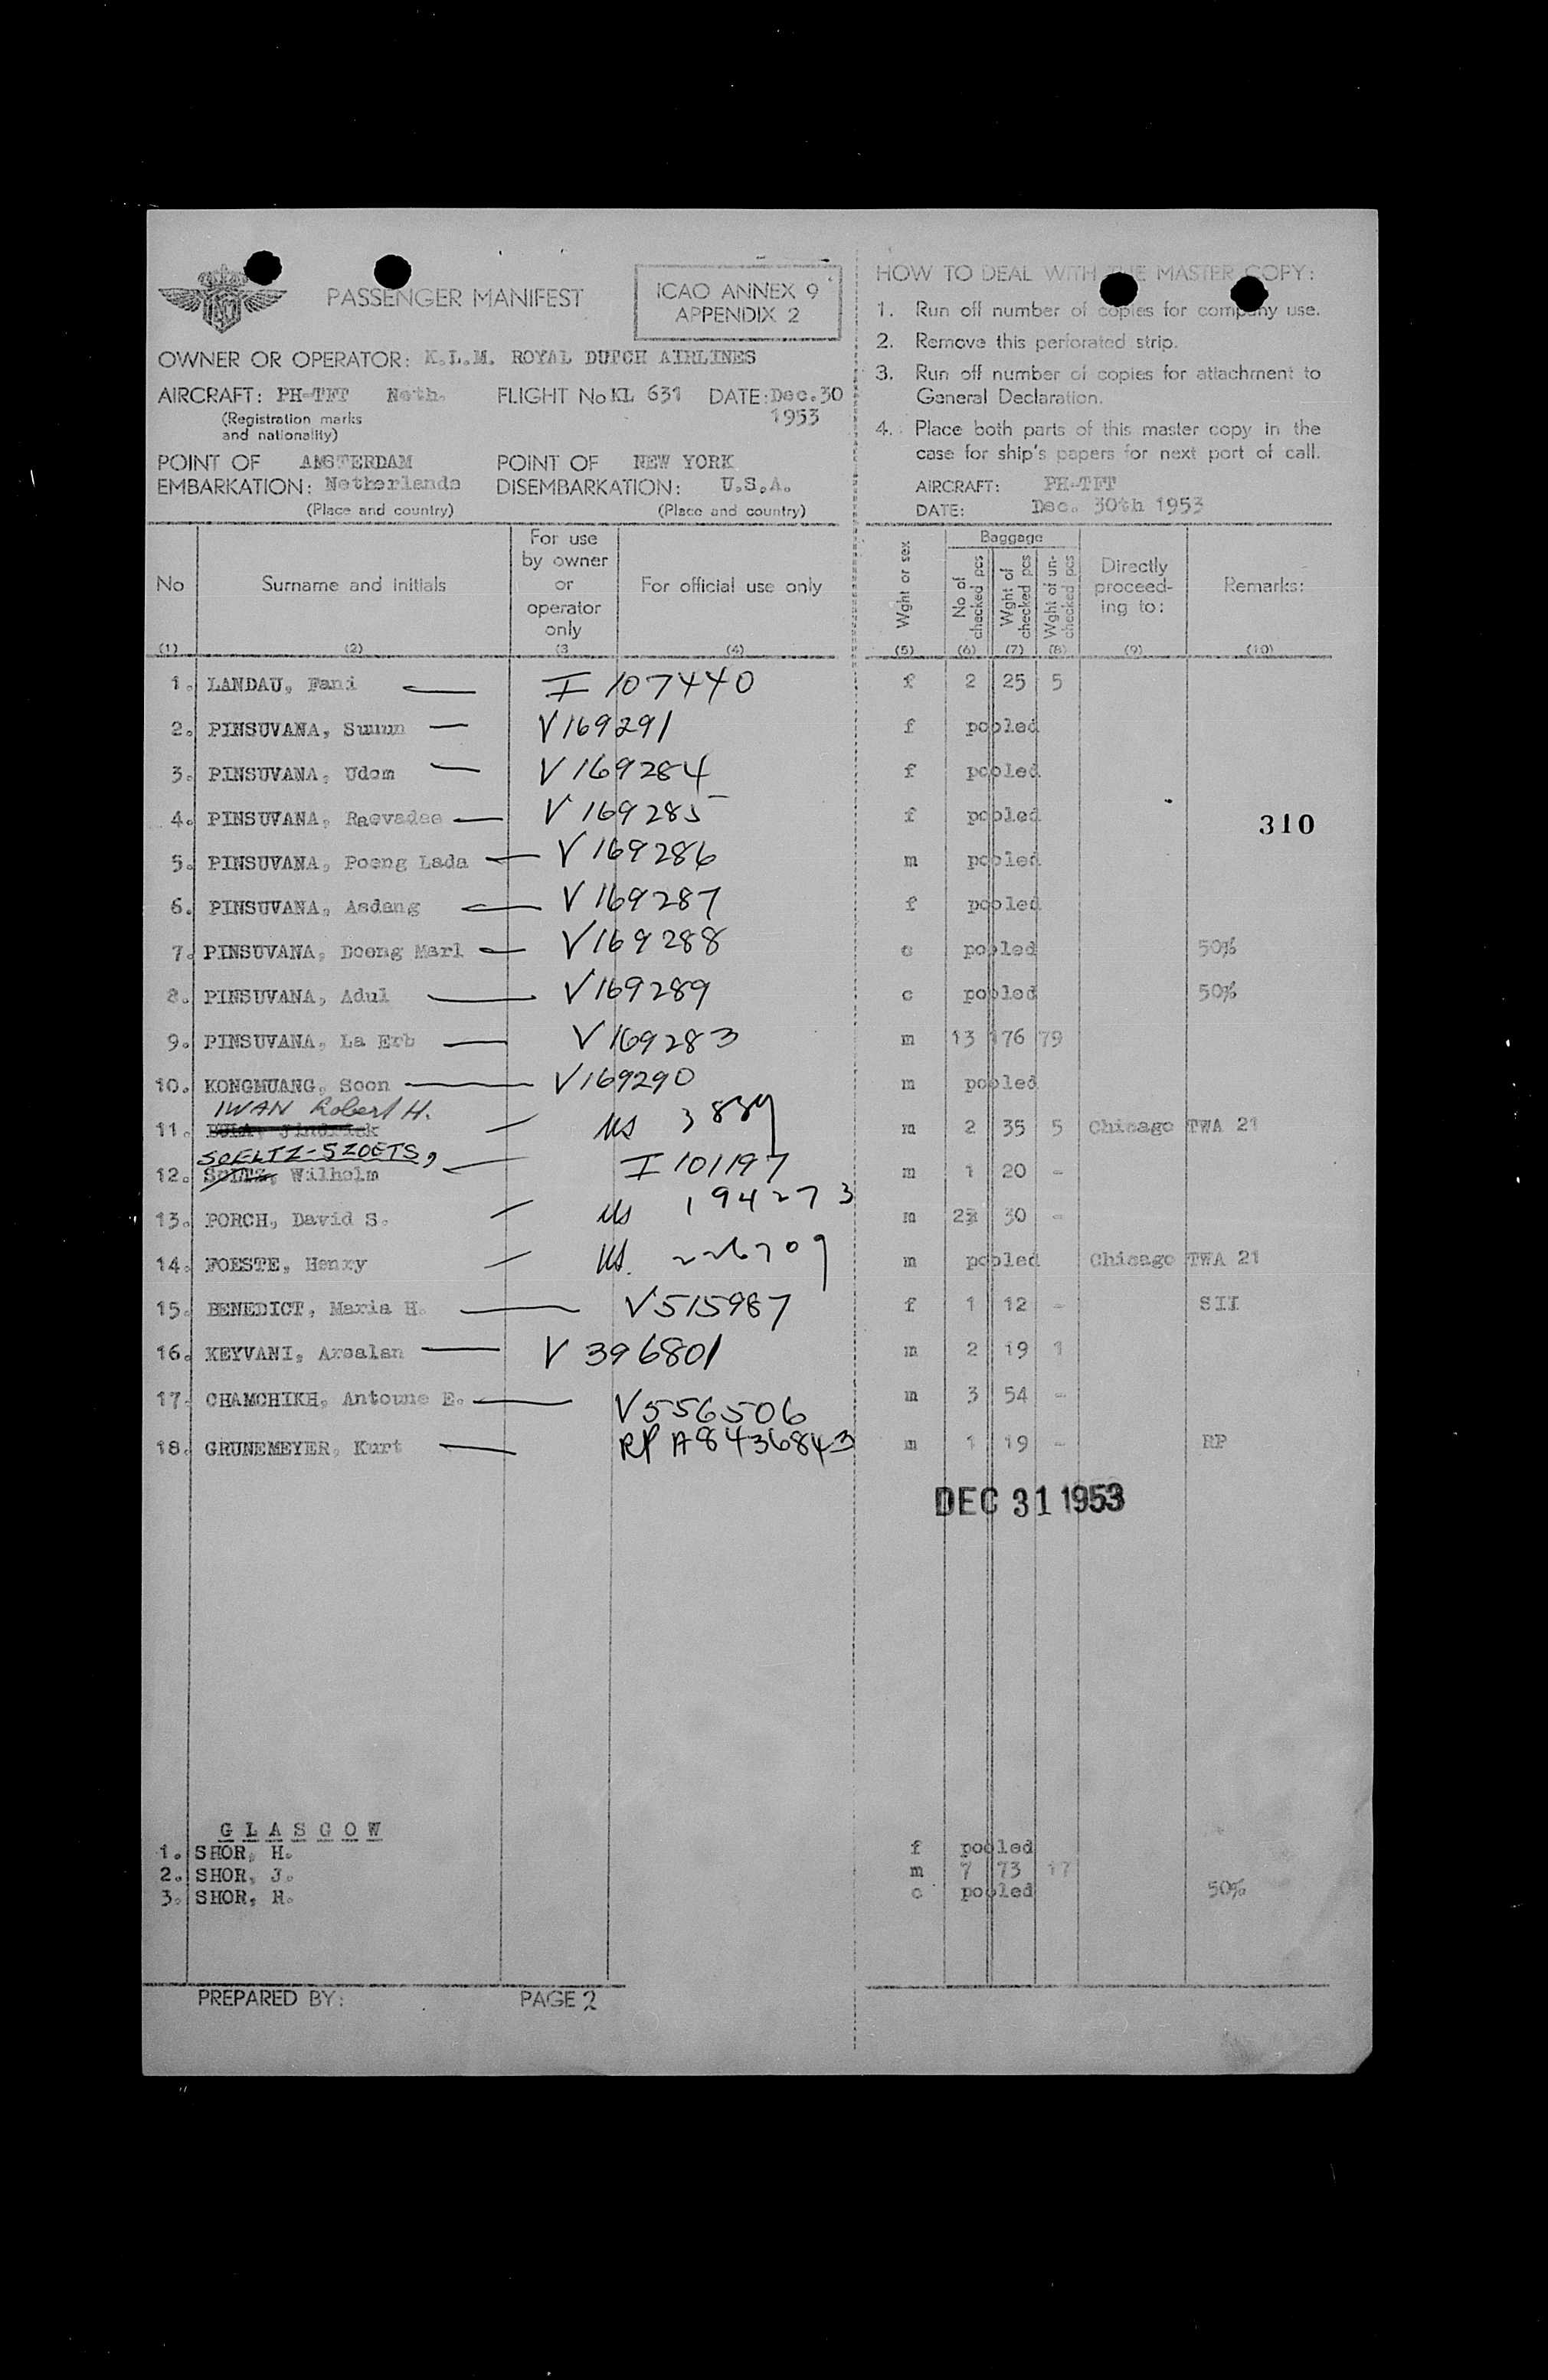 PASSENGER MANIFEST
ICAO ANNEX 9
APPENDIX 2
OWNER OR OPERATOR: K.L.M. ROYAL DUTCH AIRLINES
AIRCRAFT: PH-TFT Neth. FLIGHT No KL 631 DATE: Dec.30
1953
(Registration marks
and nationality)
POINT OF AMSTERDAM POINT OF NEW YORK
EMBARKATION: Netherlands DISEMBARKATION: U.S.A.
(Place and country) (Place and country)
HOW TO DEAL WITH THE MASTER COPY:
1. Run off number of copies for company use.
2. Remove this perforated strip.
3. Run off number of copies for attachment to
General Declaration.
4. Place both parts of this master copy in the
case for ship's papers for next port of call.
AIRCRAFT: PH-TFT
DATE: Dec. 30th 1953
No Surname and initials For use by owner or operator only For official use only Wght or sex Baggage No of checked pcs Wght of checked pcs Wght of un-checked pcs Directly proceed-ing to: Remarks:
(1) (2) (3 (4) (5) (6) (7) (8) (9) (10)
1. LANDAU, Fani — I 107440 f 2 25 5
2. PINSUVANA, Sunun — V169291 f pooled
3. PINSUVANA, Udom — V169284 f pooled
4. PINSUVANA, Raevadee — V169285 f pooled
310
5. PINSUVANA, Poeng Lada — V169286 m pooled
6. PINSUVANA, Asdang — V169287 f pooled
7. PINSUVANA, Doeng Marl — V169288 c pooled 50%
8. PINSUVANA, Adul — V169289 c pooled 50%
9. PINSUVANA, La Erb — V169283 m 13 176 79
10. KONGMUANG, Soon — V169290 m pooled
IWAN Robert H.
11. — US 3889 m 2 35 5 Chicago TWA 21
SOELTZ-SZOETS,
12. Wilhelm — I 101197 m 1 20 -
13. PORCH, David S. — US 194273 m 2 30 -
14. FOESTE, Henry — US. 226709 m pooled Chicago TWA 21
15. BENEDICT, Maria H. — V515987 f 1 12 - SII
16. KEYVANI, Arsalan — V 396801 m 2 19 1
17. CHAMCHIKH, Antoune E. — V556506 m 3 54 -
18. GRUNEMEYER, Kurt — RP A8436843 m 1 19 - RP
DEC 31 1953
GLASGOW
1. SHOR, H. f pooled
2. SHOR, J. m 7 73 17
3. SHOR, R. c pooled 50%
PREPARED BY: PAGE 2